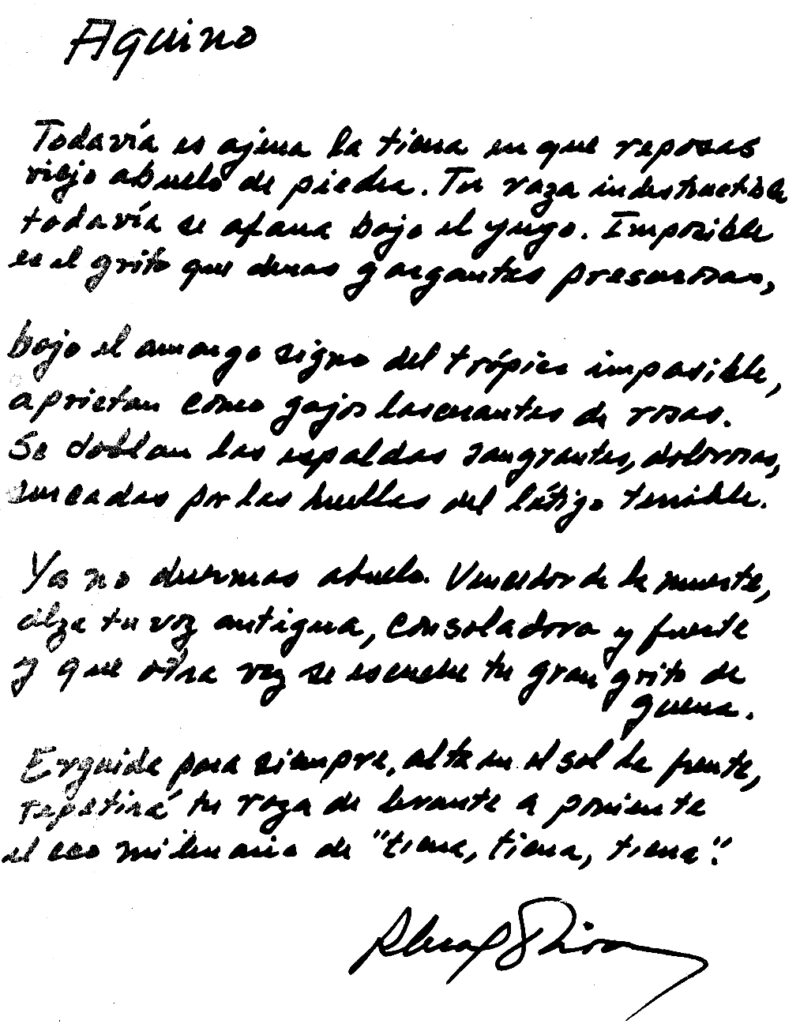 Aquino
Todavía es ajena la tierra en que reposas
viejo abuelo de piedra. Tu raza indestructible
todavía se afana bajo el yugo. Imposible
es el grito que duras gargantas presurosas,
bajo el amargo signo del trópico impasible,
aprietan como gajos lacerantes de rosas.
Se doblan las espaldas sangrantes, dolorosas,
surcadas por las huellas del látigo terrible.
Ya no duermas abuelo. Vencedor de la muerte,
alza tu voz antigua, consoladora y fuerte
y que otra vez se escuche tu gran grito de
guerra.
Erguida para siempre, alta en el sol la frente,
repetirá tu raza de levante a poniente
el eco milenario de "tierra, tierra, tierra".